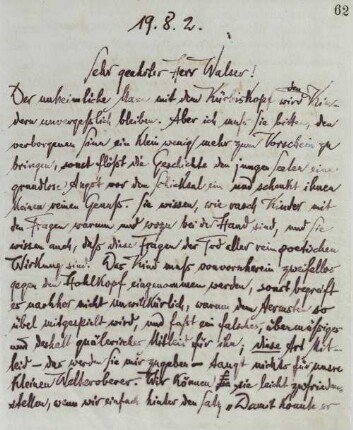 62
19. 8. 2.
Sehr geehrter Herr Walser!
Der unheimliche Mann mit dem Kürbiskopf wird den Kin-
dern unvergeßlich bleiben. Aber ich muß Sie bitten, den
verborgenen Sinn ein klein wenig mehr zum Vorschein zu
bringen, sonst flößt die Geschichte den jungen Seelen eine
grundlose Angst vor dem Schicksal ein und schenkt ihnen
keinen reinen Genuß. Sie wissen, wie rasch Kinder mit
den Fragen warum und wozu bei der Hand sind, und Sie
wissen auch, daß diese Fragen der Tod aller rein poetischen
Wirkung sind. Das Kind muß vonvornherein zweifellos
gegen den Hohlkopf eingenommen werden, sonst begreift
es nachher nicht unwillkürlich, warum dem Aermsten so
übel mitgespielt wird, und faßt ein falsches, übermäßiges
und deshalb quälerisches Mitleid für ihn; diese Art Mit-
leid – das werden Sie mir zugeben – taugt nichts für unsre
kleinen Welteroberer. Wir können sie leicht zufrieden
stellen, wenn wir einfach hinter den Satz „Damit konnte er